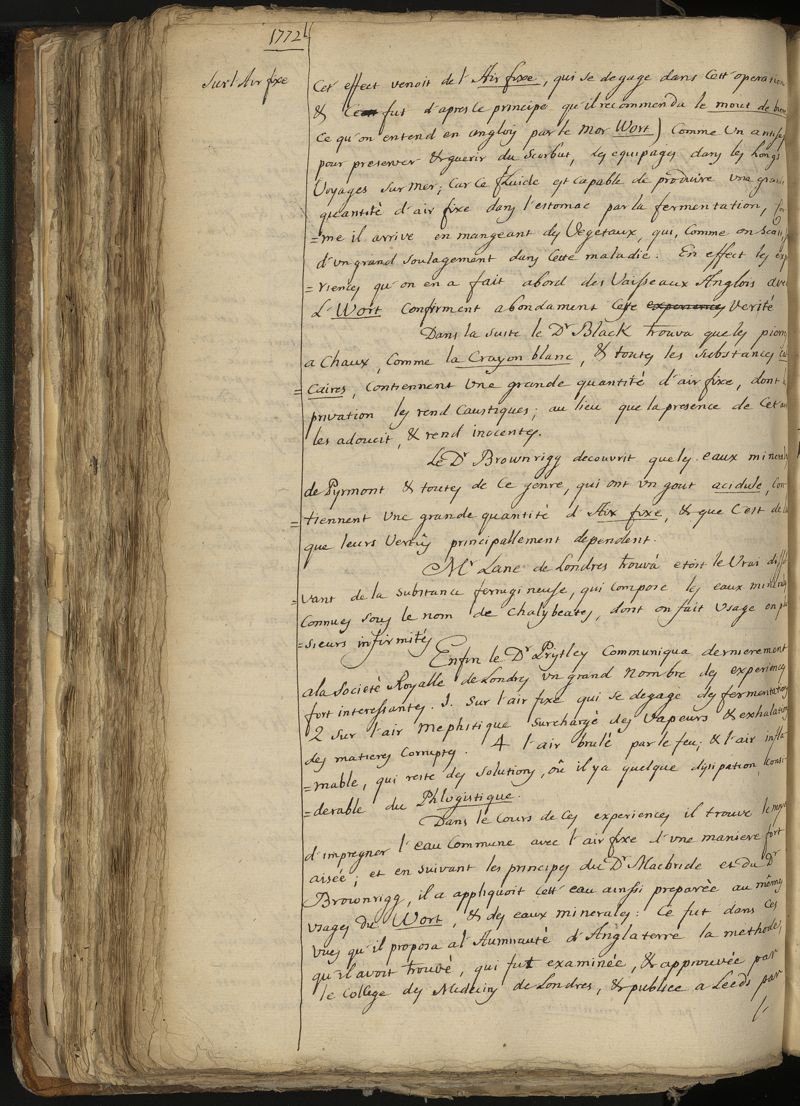 1772
Sur l'Air fixe
Cet effect venoit de l'Air fixe, qui se degage dans cett operation
& fut d'apres le principe qu'il recommenda le mout de bier
Ce qu'on entend en anglois par le mor Wort) Comme un antisep
pour preserver & guerir du Scorbut, les equipages dans les longs
Voyages sur mer; Car ce fluide est capable de produire une grand
quantité d'air fixe dans l'estomac par la fermentation, Com
=me il arrive en mangeant des Vegetaux, qui, Comme on Scait,
d'un grand soulagement dans cette maladie: En effect les exp
=riences qu'on en a fait abord des Vaisseaux Anglois avec
L' Wort Confirment abondament Cete experiences Verité
Dans la suite le Dr Black trouva que les pierres
a Chaux, Comme la Crayon blanc, & toutes les substances Cal
=Caires, Contiennent Une grande quantité d'air fixe, dont la
privation les rend Caustiques; au lieu que la presence de Cet air
les adoucit, & rend inocentes.
Le Dr Brownrigg decouvrit que les eaux minerals
de Pyrmont & toutes de ce genre, qui ont un gout acidule, Con
=tiennent Une grande quantité d'Aix fixe, & que C'est de la
que leurs Vertûs principallement dependent.
Mr Lane de Londres trouvà etoit le Vrai dissol
=vant de la substance ferrugineuse, qui compose les eaux minerals
Connues sous le nom de Chalybeates, dont on fait Usage en plu
=sieurs infirmités
Enfin le Dr Pristley Communiqua dernierement
a la Societé Royalle de Londres Un grand Nombre des experiences
fort interessantes. 1. Sur l'air fixe qui se degage des fermentations
2 Sur l'air Mephitique surchargé des Vapeurs & exhalations
des matieres Corruptes. 4 l'air brulé par le feu; & l'air infla
=mable, qui reste des solutions, où il y a quelque disipation Consi
=derable du Phlogistique.
Dans le Cours de Ces experiences il trouve le moyen
d'impregner l'eau Commune avec l'air fixe d'une maniere fort
aisée; et en suivant les principes du Dr Macbride et du Dr
Brownrigg, il a appliquoit Cett eau ainssi preparée au mêmes
usages du Wort, & des eaux minerales: Ce fut dans Ces
Vues qu'il proposa a l'Aumirauté d'Anglaterre la methode,
qu'il avoit trouvé, qui fut examinée, & approuvée par
le College des Medecins de Londres, & publiée a Leeds par